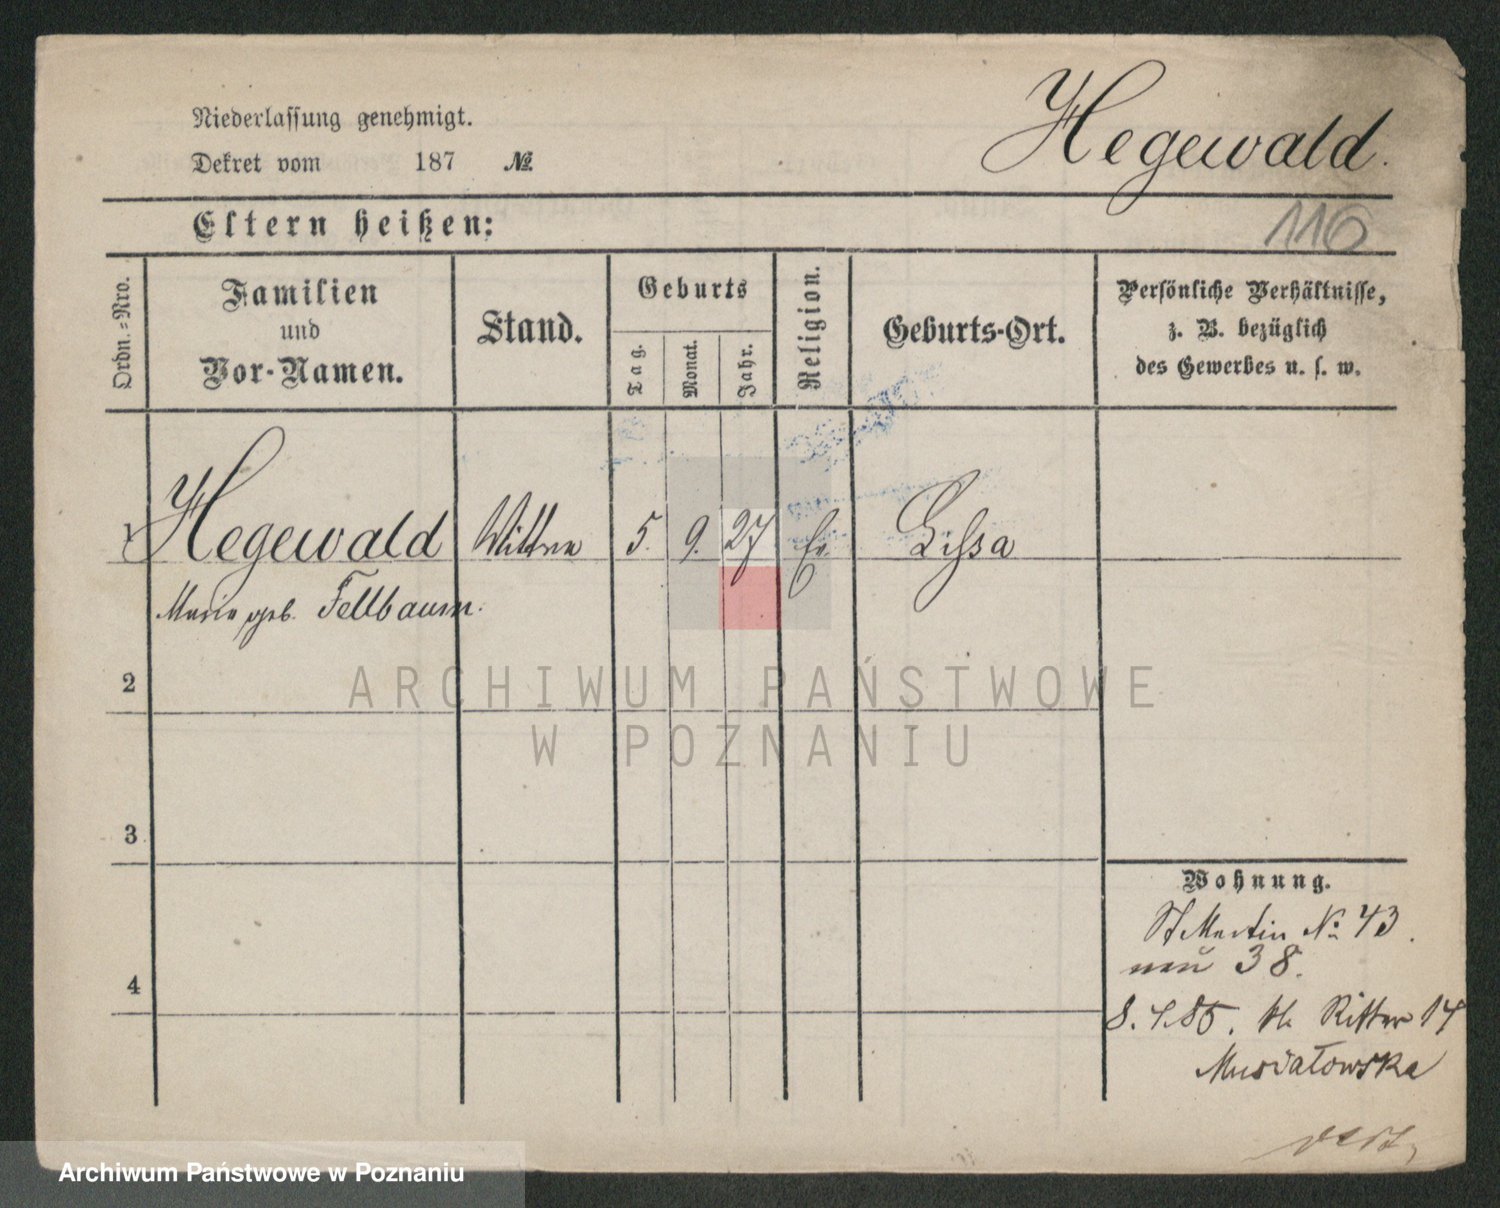 Niederlassung genehmigt.
Dekret vom 187 №
Hegewald.
116
Eltern heißen:
Ordn.=Nro.
Familien
und
Vor-Namen.
Stand.
Geburts
Tag.
Monat.
Jahr.
Religion.
Geburts-Ort.
Persönliche Verhältnisse,
z. B. bezüglich
des Gewerbes u. s. w.
1 Hegewald Wittwe 5. 9. 27 Ev. Lissa
Marie geb. Fellbaum.
2
ARCHIWUM PAŃSTWOWE
W POZNANIU
3
4
Wohnung.
St Martin No 43.
neu 38.
8. 4. 85. Kl. Ritter 14
Archiwum Państwowe w Poznaniu